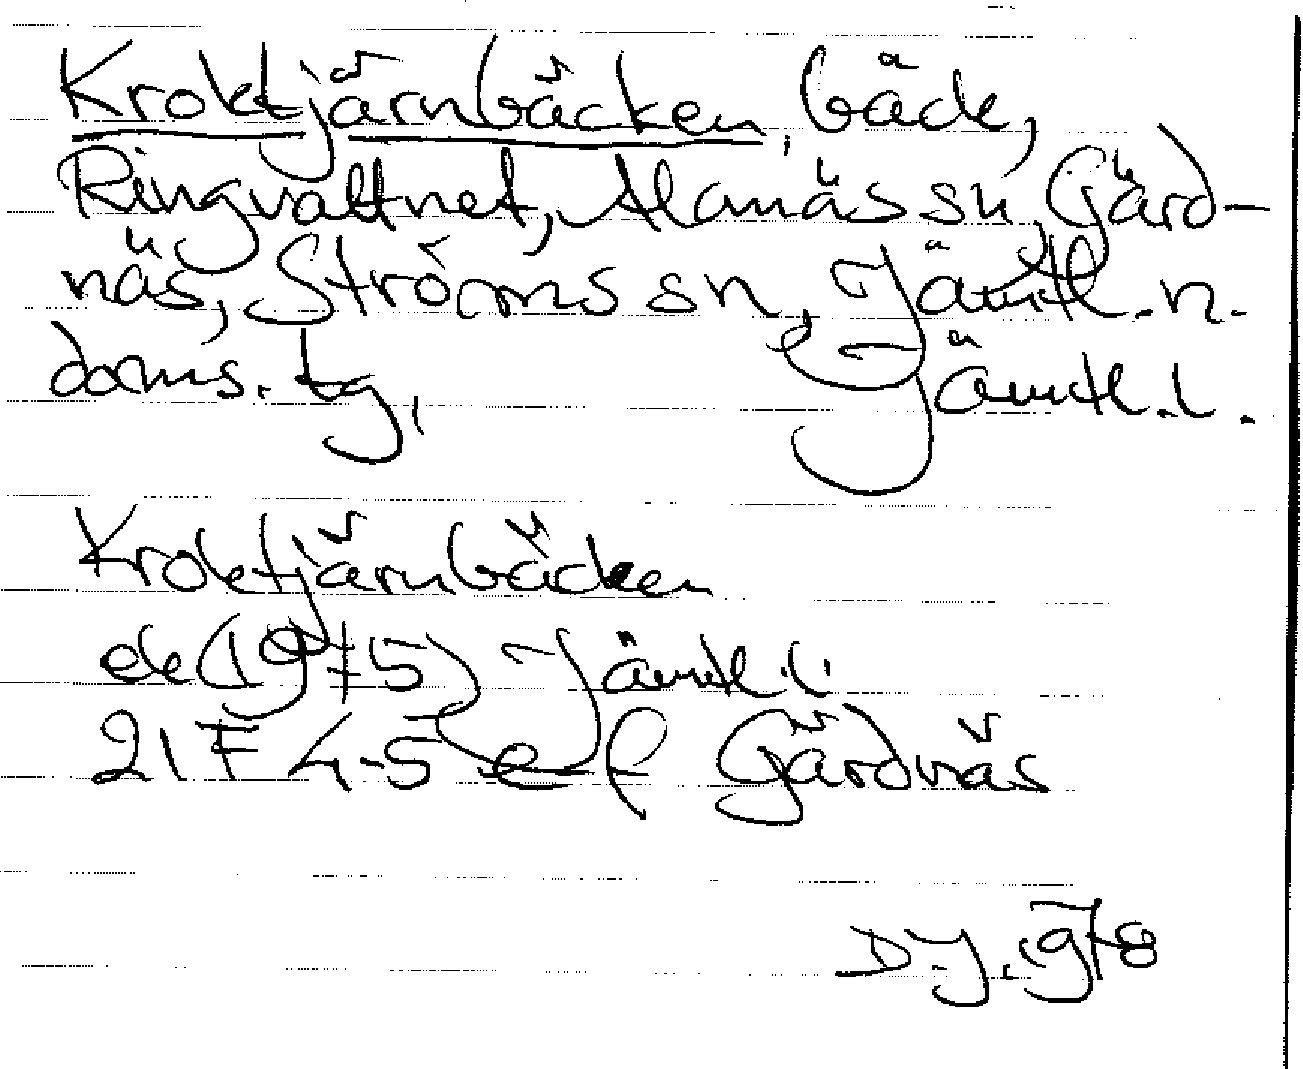 Kroktjärnbäcken, bäck,
Ringvattnet, Alanäs sn, Gärd-
näs, Ströms sn, Jämtl. n.
doms. tg, Jämtl. l.
Kroktjärnbäcken
ek (1975) Jämtl. l.
21F 4-5 e f Gärdnäs
D.J. 1978